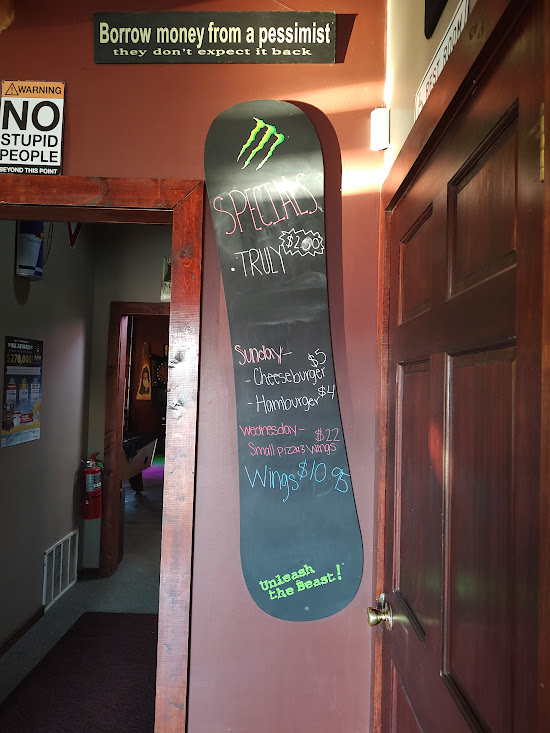 Borrow money from a pessimist
they don't expect it back
WARNING
NO
STUPID
PEOPLE
BEYOND THIS POINT
SPECIALS
• TRULY $2.00
Sunday-
- Cheeseburger $5
- Hamburger $4
Wednesday- $22
Small pizza & Wings
Wings $10.95
Unleash
the Beast!
$270,000